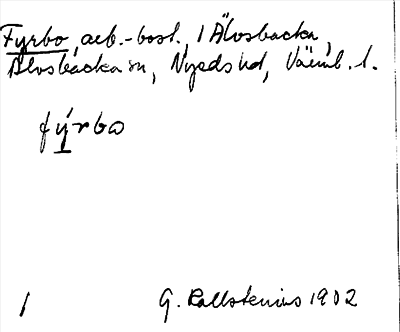 Fyrbo, arb.-bost., 1 Älvsbacka,
Älvsbacka sn, Nyeds hd, Värml. l.
fýrbω
1
G. Kallstenius 1902